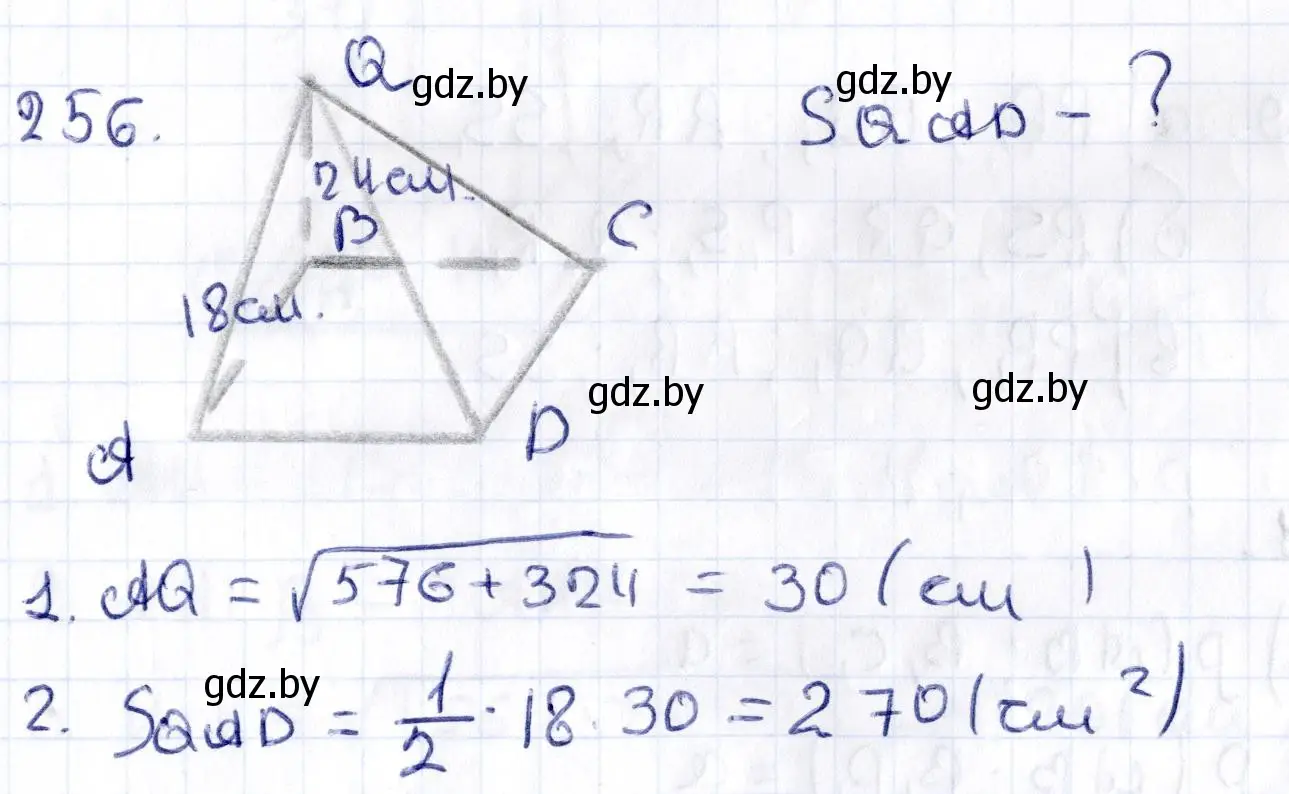 256.
Q
gdz.by
gdz.by
SQAD - ?
24 см.
B
C
18 см.
gdz.by
gdz.by
A
D
1. AQ = √576 + 324 = 30 (см)
gdz.by
2. SQAD = 1/2 · 18 · 30 = 270 (см²)